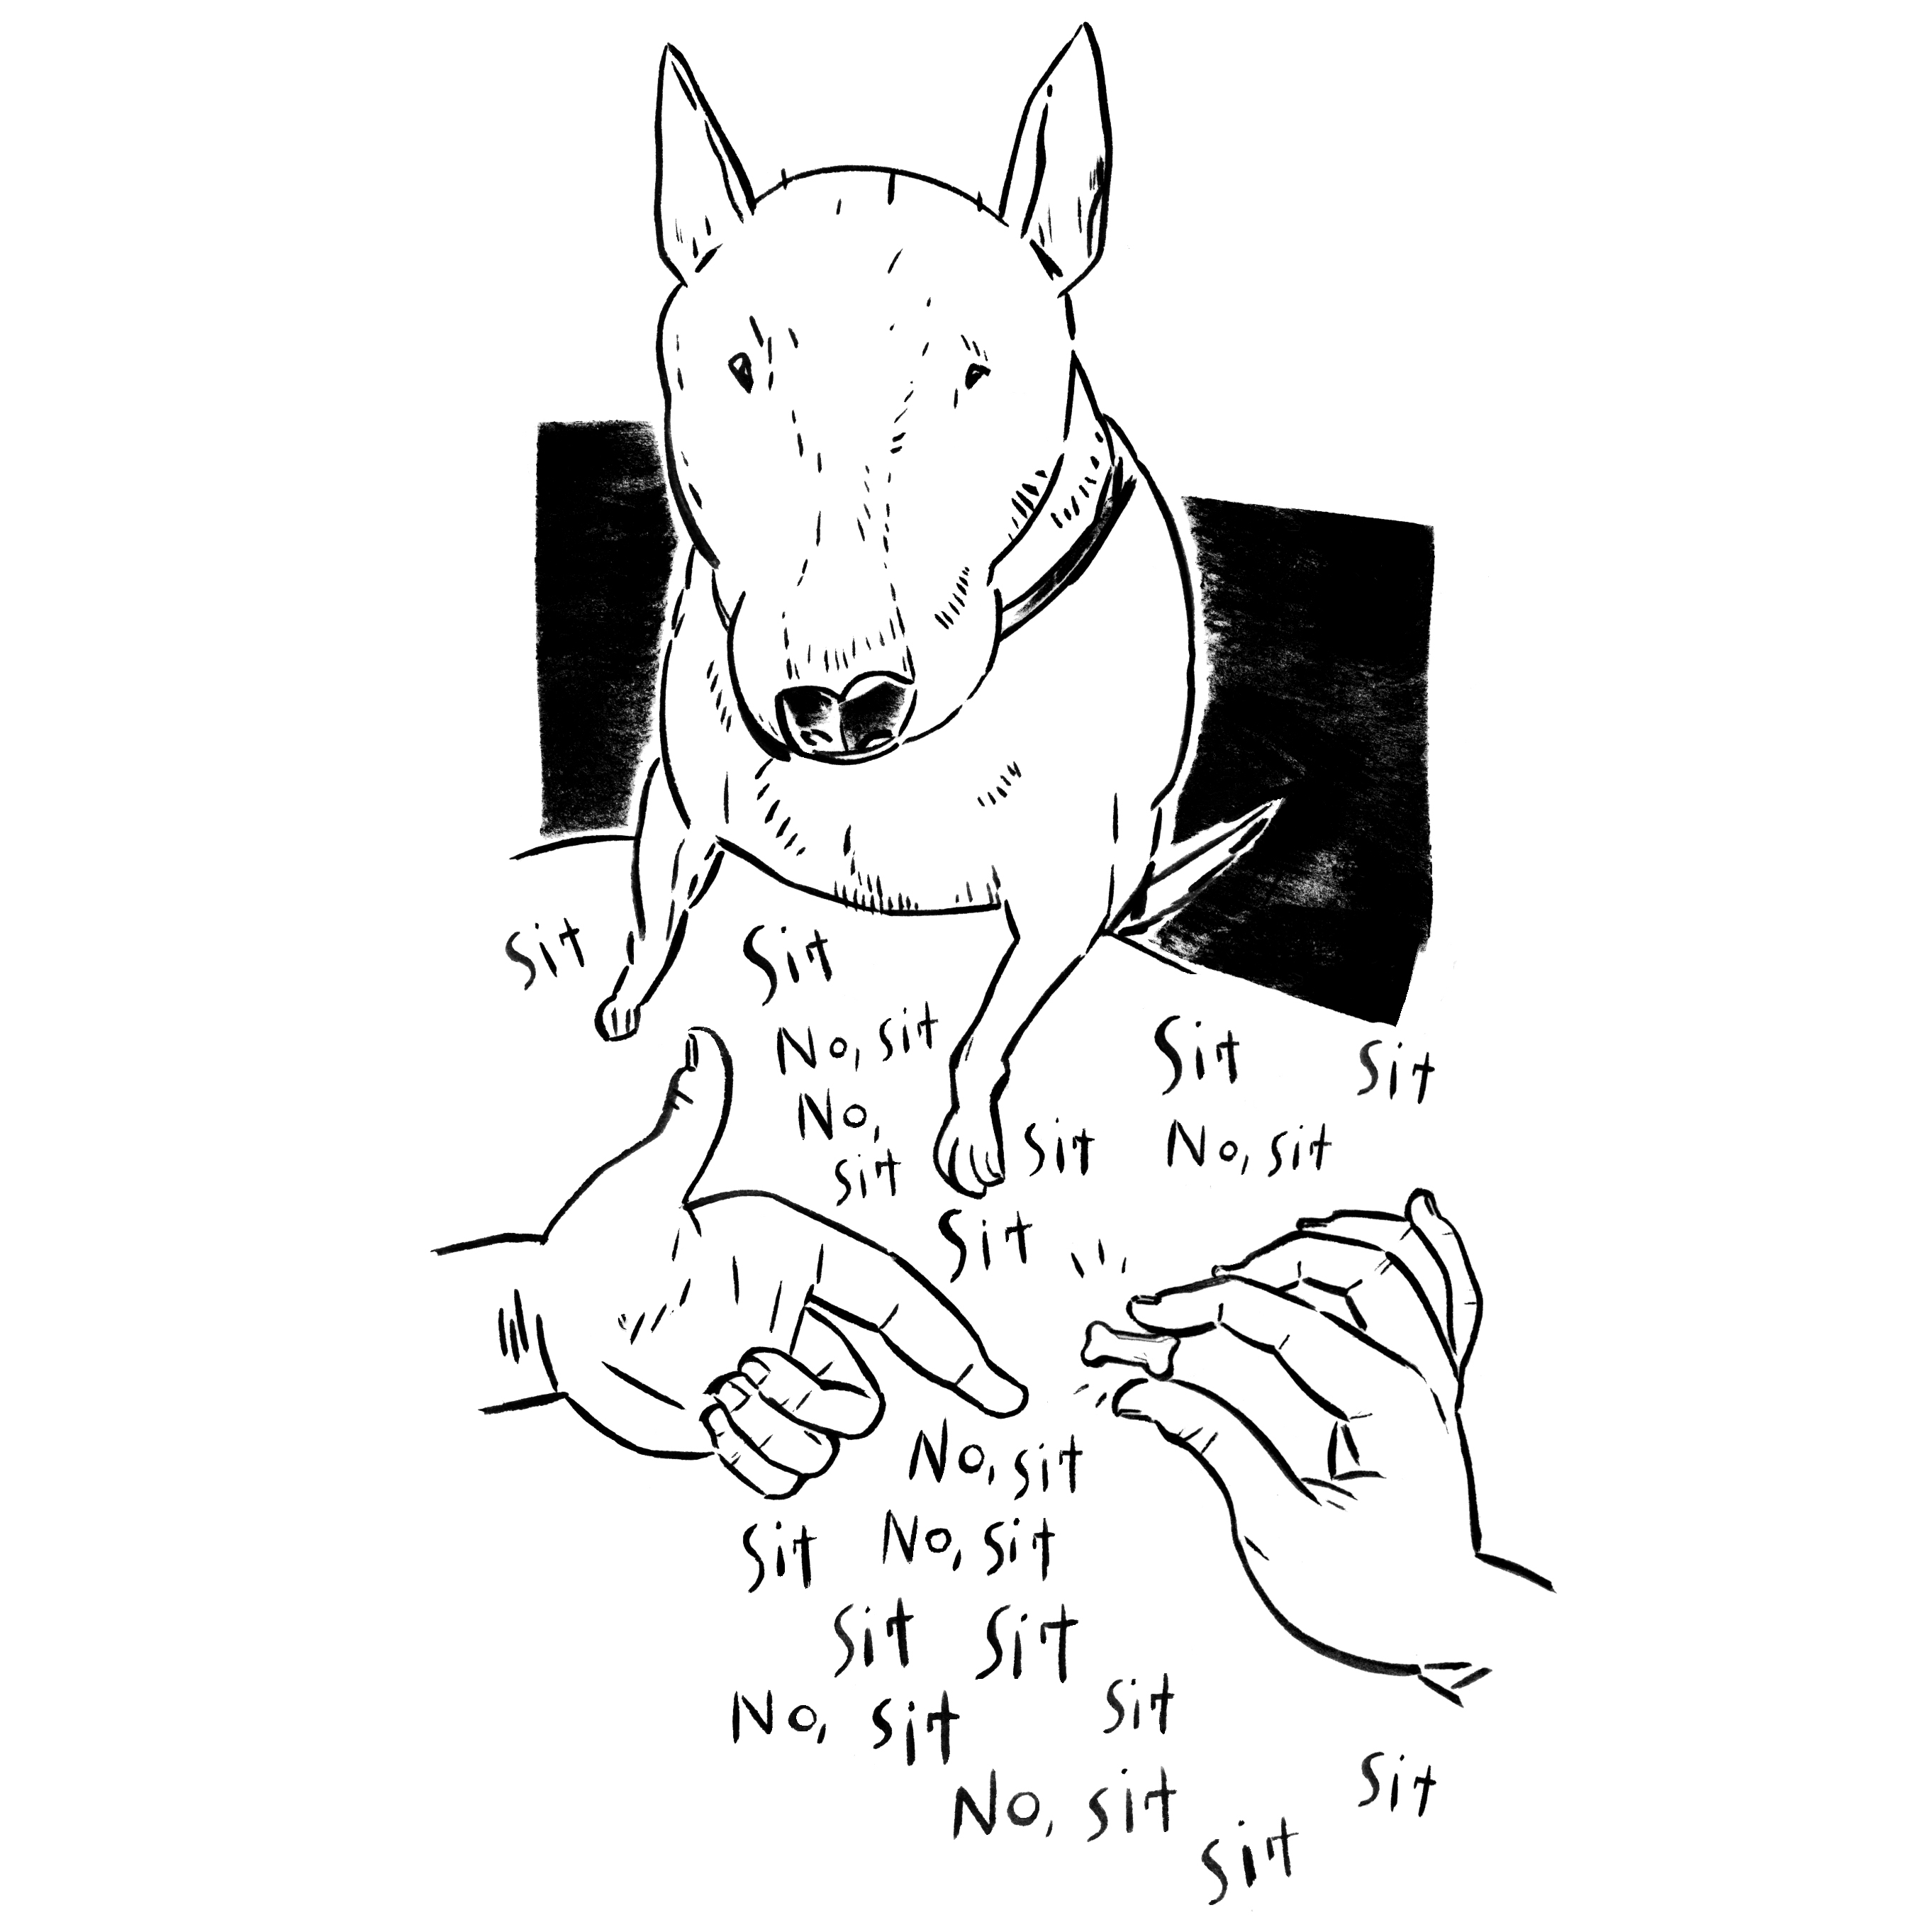 Sit
Sit
No, sit
No,
sit
Sit
Sit
Sit
No, sit
Sit
No, sit
Sit
No, sit
Sit
Sit
No, sit
Sit
No, sit
Sit
Sit